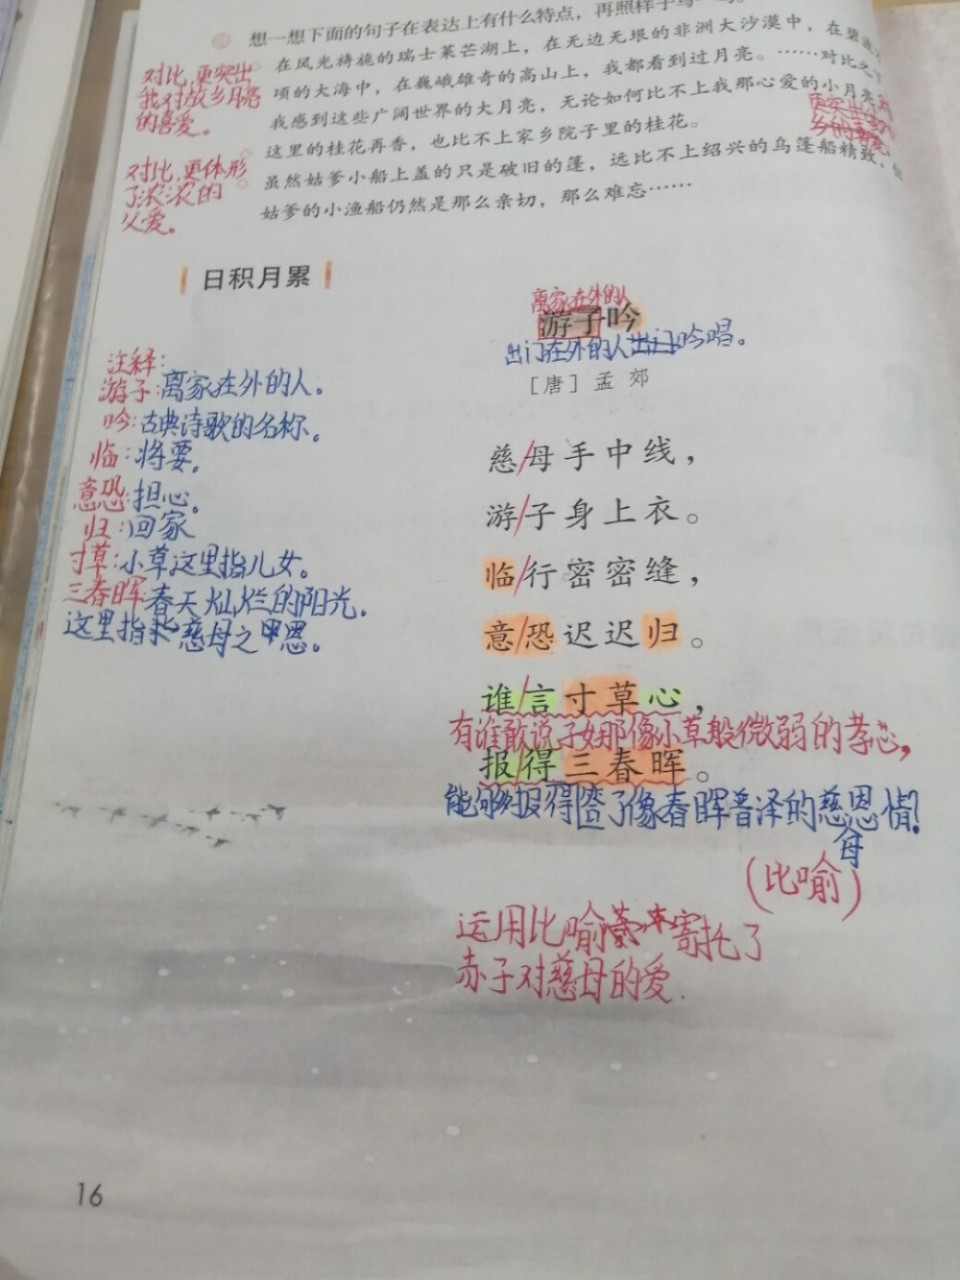 想一想下面的句子在表达上有什么特点，再照样子写一写。
在风光旖旎的瑞士莱芒湖上，在无边无垠的非洲大沙漠中，在碧波
顷的大海中，在巍峨雄奇的高山上，我都看到过月亮。……对比之下
我感到这些广阔世界的大月亮，无论如何比不上我那心爱的小月亮
这里的桂花再香，也比不上家乡院子里的桂花。
虽然姑爹小船上盖的只是破旧的篷，远比不上绍兴的乌篷船精致，但
姑爹的小渔船仍然是那么亲切，那么难忘……
对比，更突出
我对故乡月亮
的喜爱。
对比，更体形
了浓浓的
父爱。
日积月累
离家在外的人
游子吟
出门在外的人出门吟唱。
［唐］孟 郊
注释：
游子：离家在外的人。
吟：古典诗歌的名称。
临：将要。
意恐：担心。
归：回家
寸草：小草这里指儿女。
三春晖：春天灿烂的阳光。
这里指慈母之恩。
慈/母手中线，
游/子身上衣。
临/行密密缝，
意/恐迟迟归。
谁/言寸草心，
有谁敢说子女那像小草般微弱的孝心，
报/得三春晖。
能够报得了像春晖普泽的慈母恩情！
（比喻）
运用比喻寄托了
赤子对慈母的爱.
16